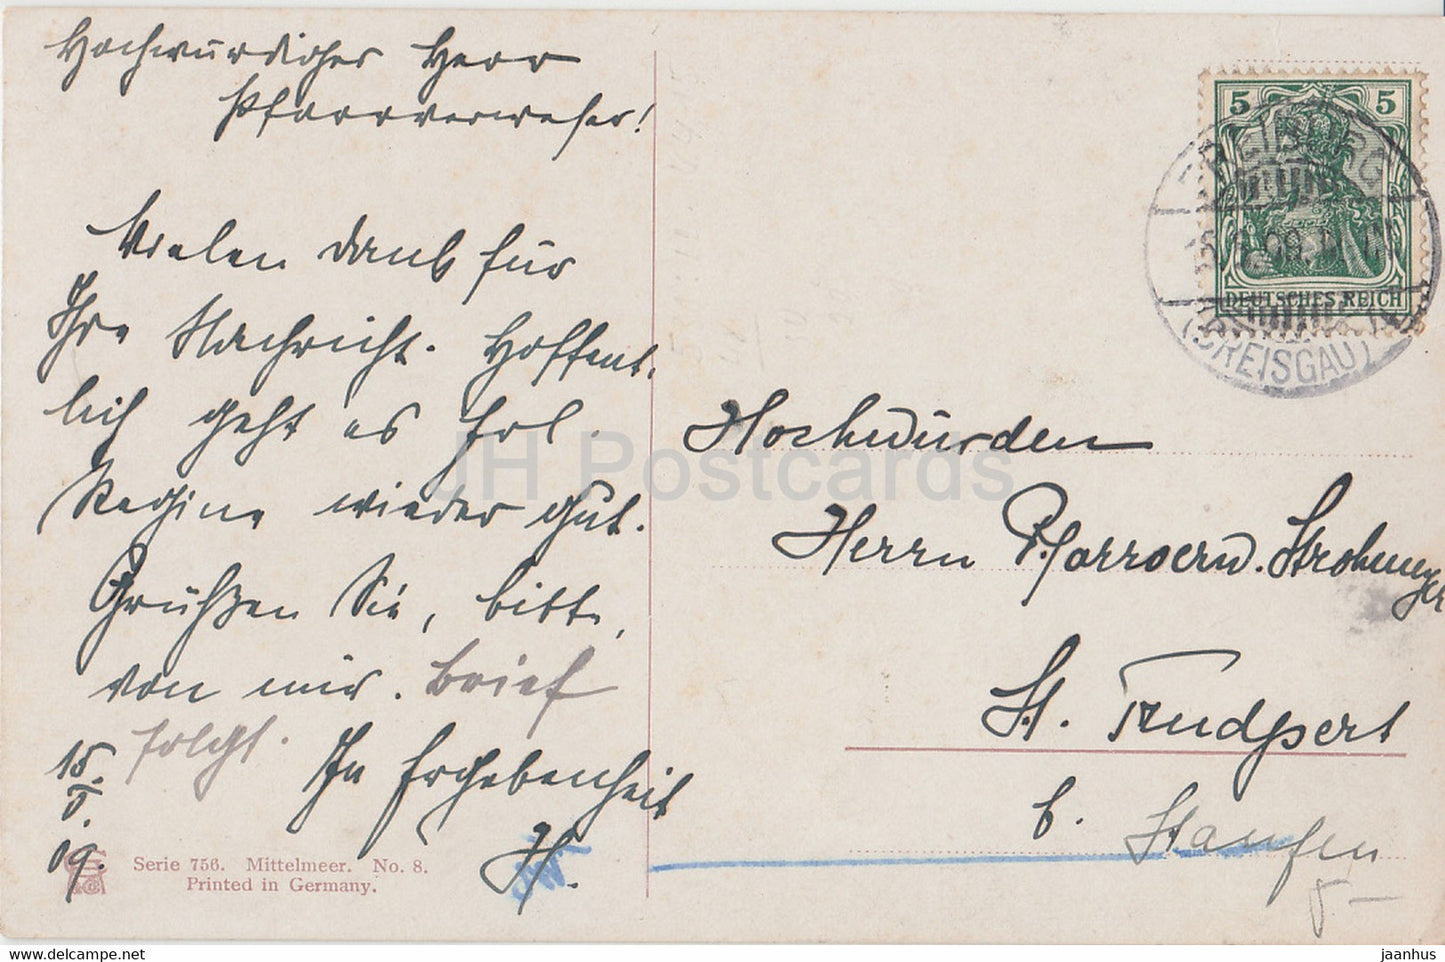 Hochwürdiger Herr
Pfarrverweser!
Vielen Dank für
Ihre Nachricht. Hoffent-
lich geht es Frl.
Regine wieder gut.
Grüßen Sie, bitte,
von mir. Brief
folgt. In Ergebenheit
H.
15.
5.
09.
Serie 756. Mittelmeer. No. 8.
Printed in Germany.
5 5
DEUTSCHES REICH
FREIBURG
(BREISGAU)
Hochwürden
Herrn Pfarrverw. Strohmeyer
St. Trudpert
b. Staufen
JH Postcards
jaanhus